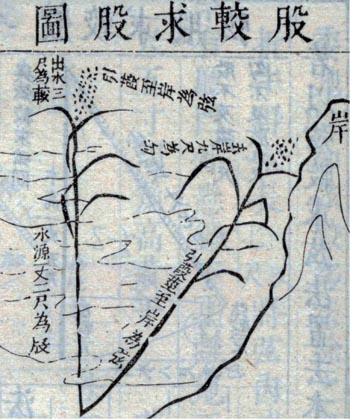 股較求股圖
岸
去岸九尺為勾
引葭至岸為弦
出水三
尺為較
引葭莖至岸為弦
水深丈二尺為股